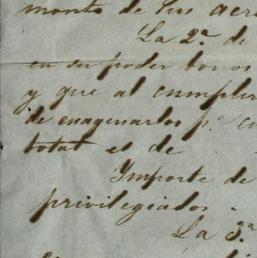 monto de sus acre
La 2.ª de
en su poder bonos
y que al cumplir
de enagenarlos p.r cu
total es de
Importe de
privilegiados.
La 3.ª